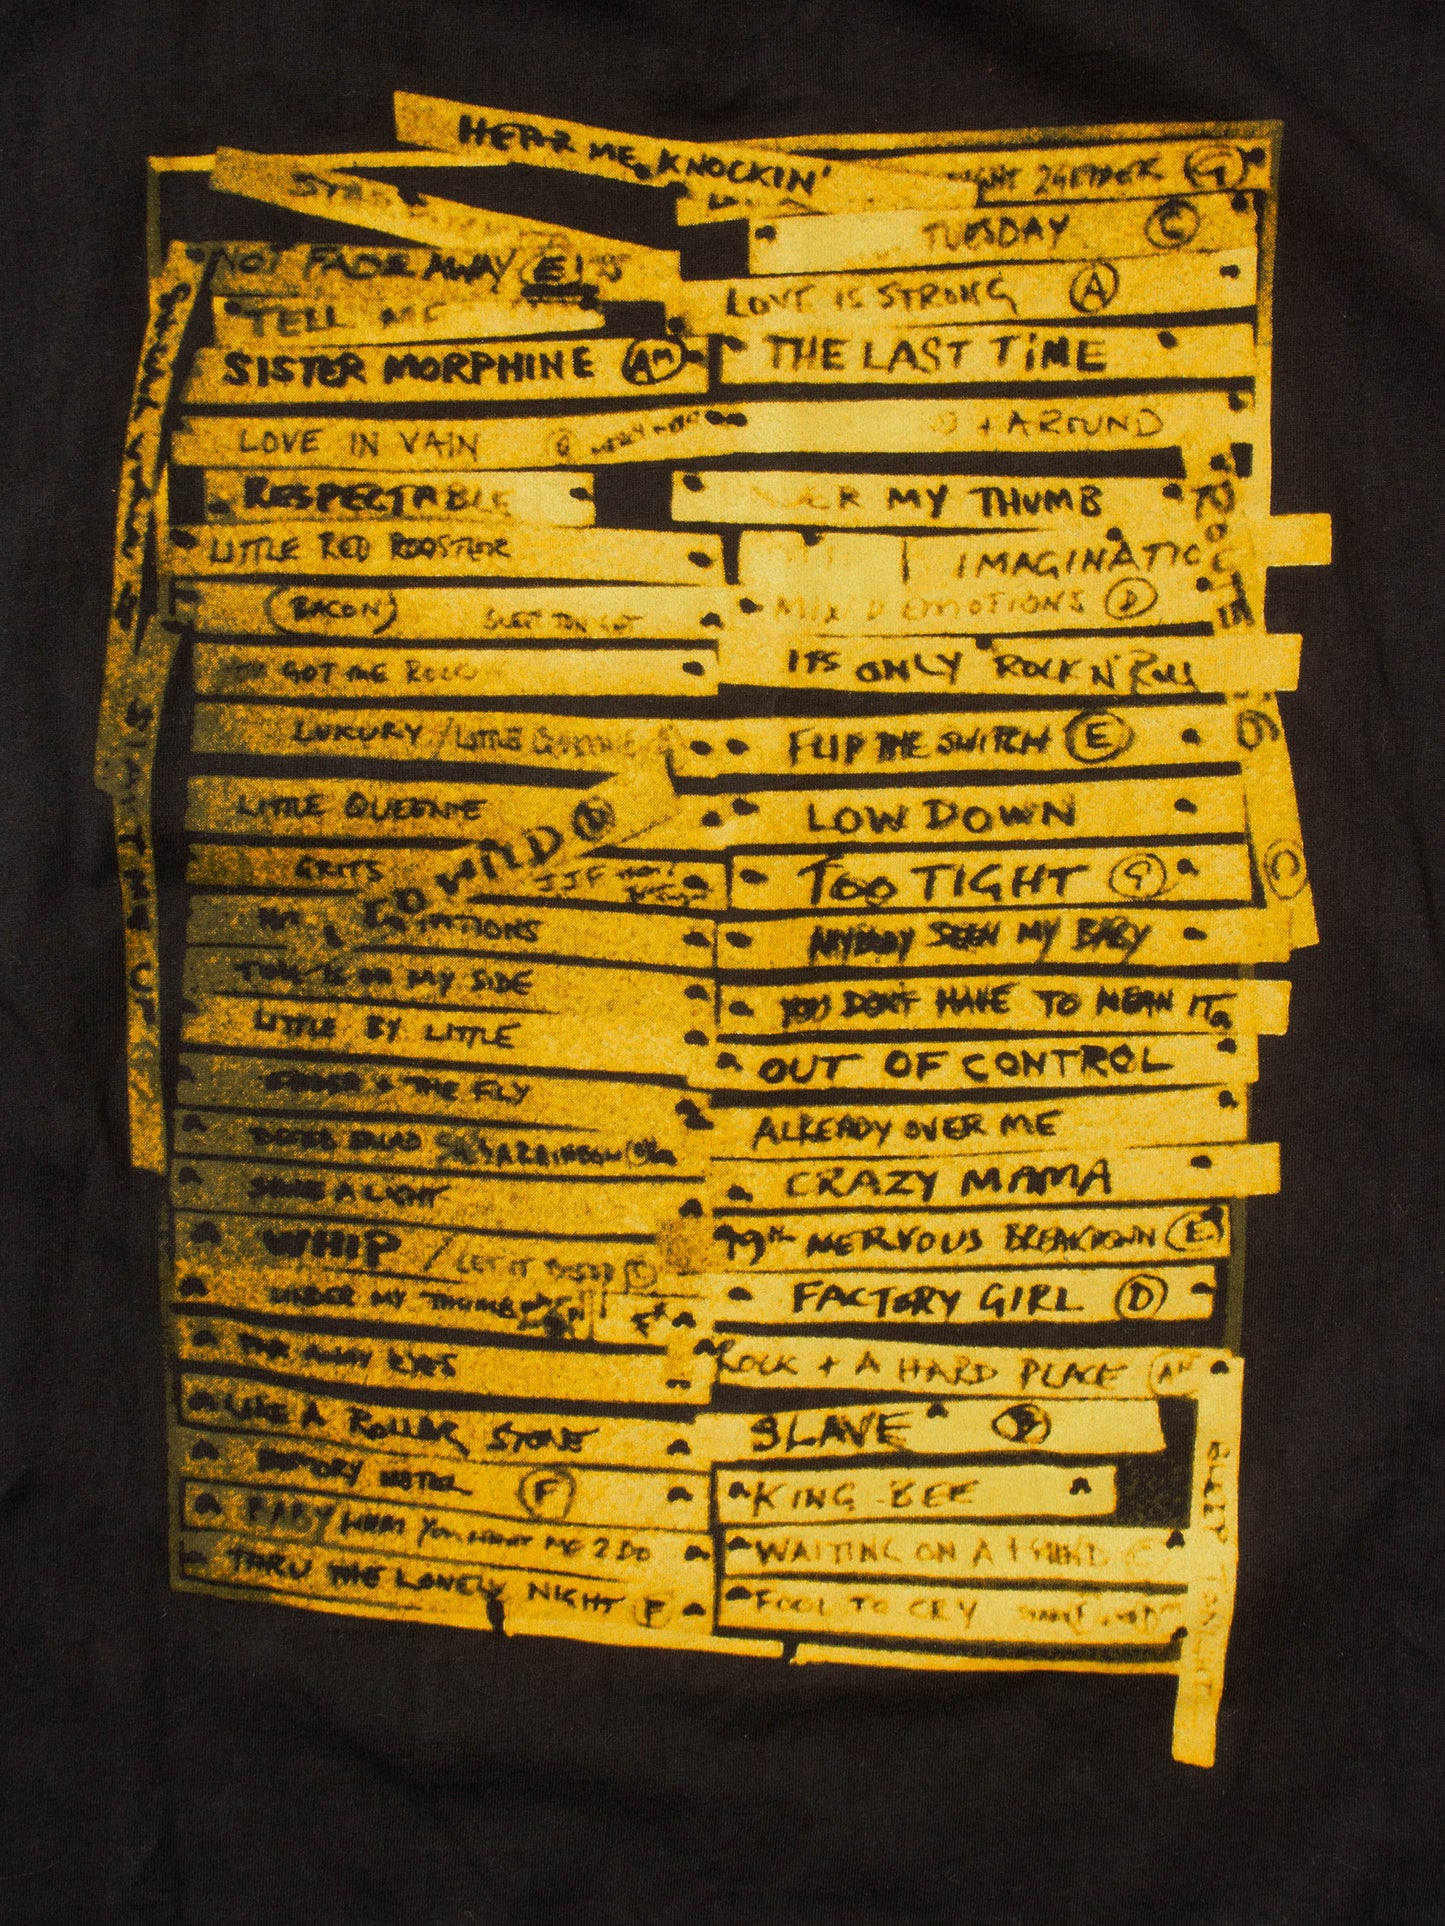 HEAR ME KNOCKIN'
NOT FADE AWAY E
TELL ME
SISTER MORPHINE AM
LOVE IN VAIN G
RESPECTABLE
LITTLE RED ROOSTER
(BACON)
GOT ME
LUXURY / LITTLE
LITTLE QUEENIE
GRITS
GO WILD D
JJF
TATIONS
TIME IS ON MY SIDE
LITTLE BY LITTLE
+ THE FLY
SHINE A LIGHT
WHIP / LET IT
UNDER MY THUMB
FAR AWAY EYES
LIKE A ROLLING STONE
MEMORY MOTEL F
BABY WHAT YOU WANT ME 2 DO
THRU THE LONELY NIGHT F
START ME UP
NIGHT 2GETHER G
TUESDAY C
LOVE IS STRONG A
THE LAST TIME
+ AROUND
ER MY THUMB
IMAGINATIO
MIXED EMOTIONS D
ITS ONLY ROCK N' ROLL
FLIP THE SWITCH E
LOW DOWN
TOO TIGHT G
ANYBODY SEEN MY BABY
YOU DON'T HAVE TO MEAN IT
OUT OF CONTROL
ALREADY OVER ME
CRAZY MAMA
19th NERVOUS BREAKDOWN E
FACTORY GIRL D
ROCK + A HARD PLACE AM
SLAVE
KING BEE
WAITING ON A
FOOL TO CRY
C
SLEEP TONIGHT